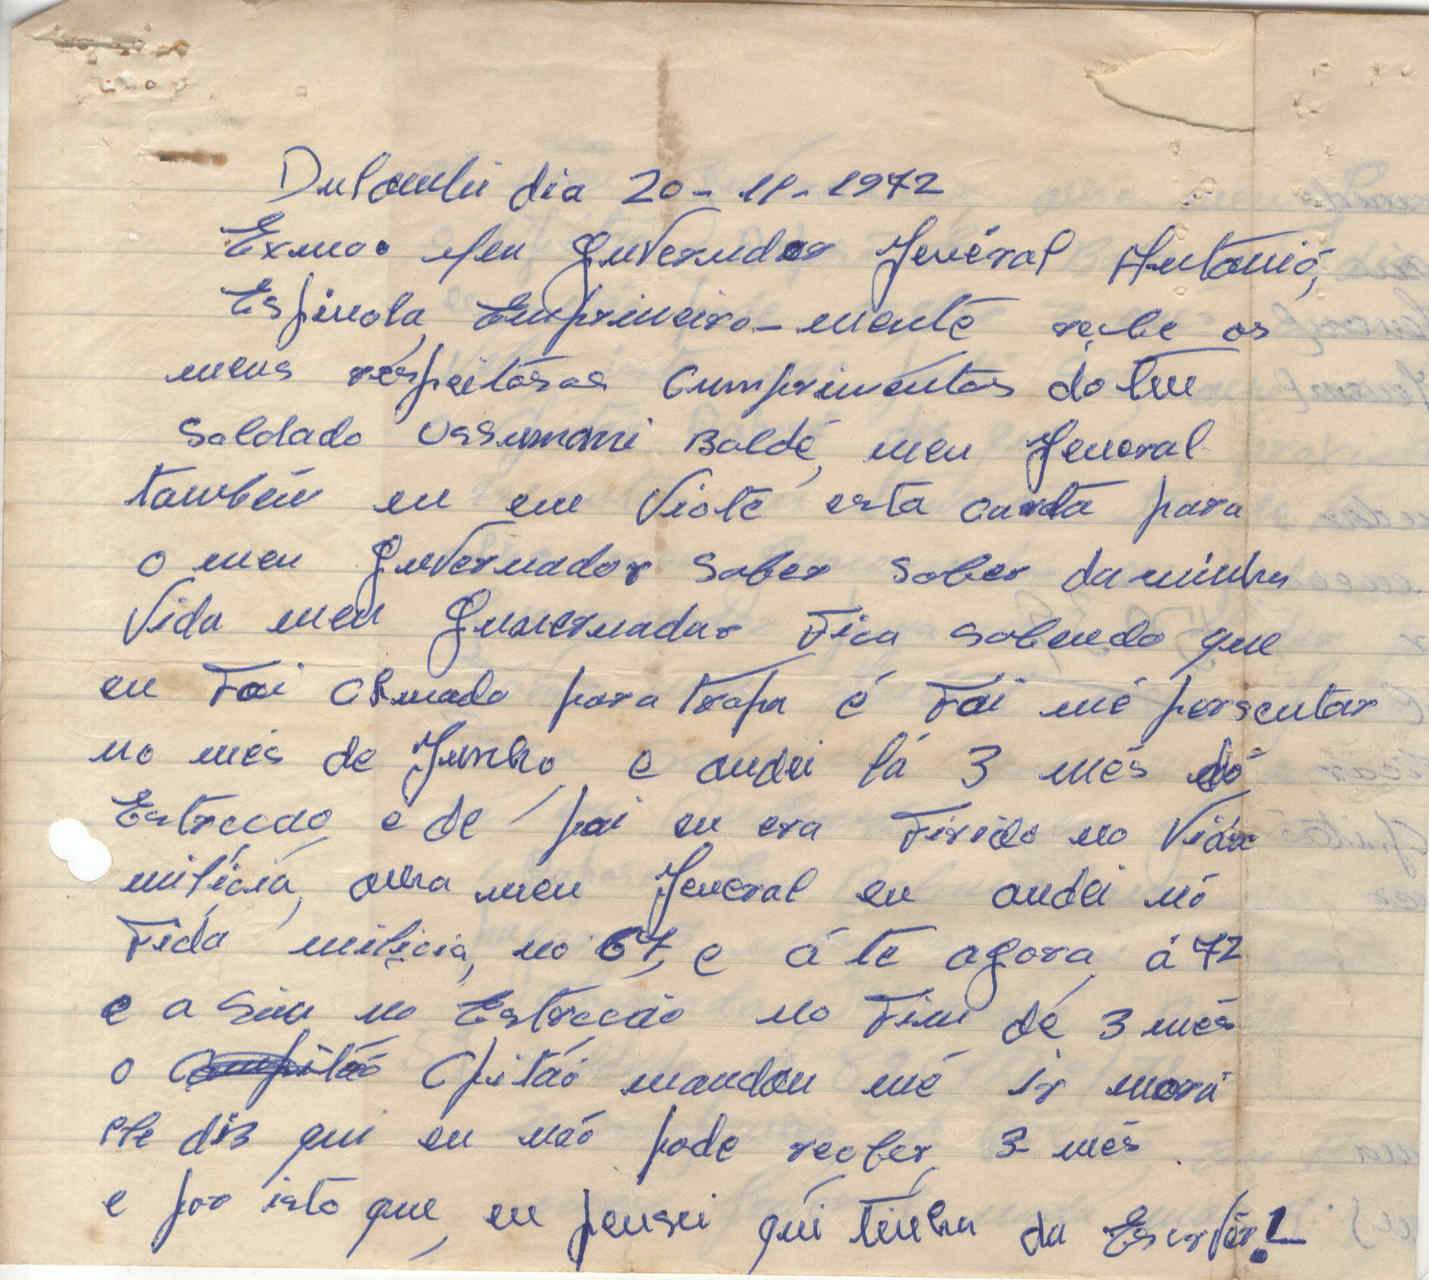 Dulombi dia 20-11-1972
Exmo. Meu Guvernador Jenéral Antonió,
Espinola, Emprimeiro-mente recbe os
meus réspeitósos Cumprimentos do teu
Soldado Ussumani Baldé, meu Jeneral
também eu em Viote esta carta para
o meu Guvernador Saber Saber da minha
Vida meu Guvernador Fica Sabendo que
eu Foi chmado para tropa é Foi mé persentar
no més de Junho, e andei lá 3 més dó
Estrccão, e dé pai eu era Firido no Vida
milícia, ora meu Jeneral eu andei nó
Fida milicia, no 67, e á té agora á 72
e a Sim no Estrccão no Fim dé 3 més
o Cpitão mandou mé ir mora
ele diz qui eu não pode recber 3 més
e por isto que, eu pensei qui tinha da EscrVer!